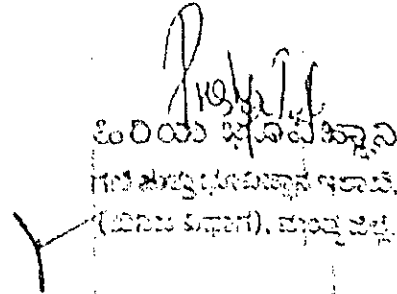 ಹಿರಿಯ ಭೂವಿಜ್ಞಾನಿ
ಗಣಿ ಮತ್ತು ಭೂವಿಜ್ಞಾನ ಇಲಾಖೆ,
(ಖನಿಜ ವಿಭಾಗ), ಮಂಡ್ಯ ಜಿಲ್ಲೆ.